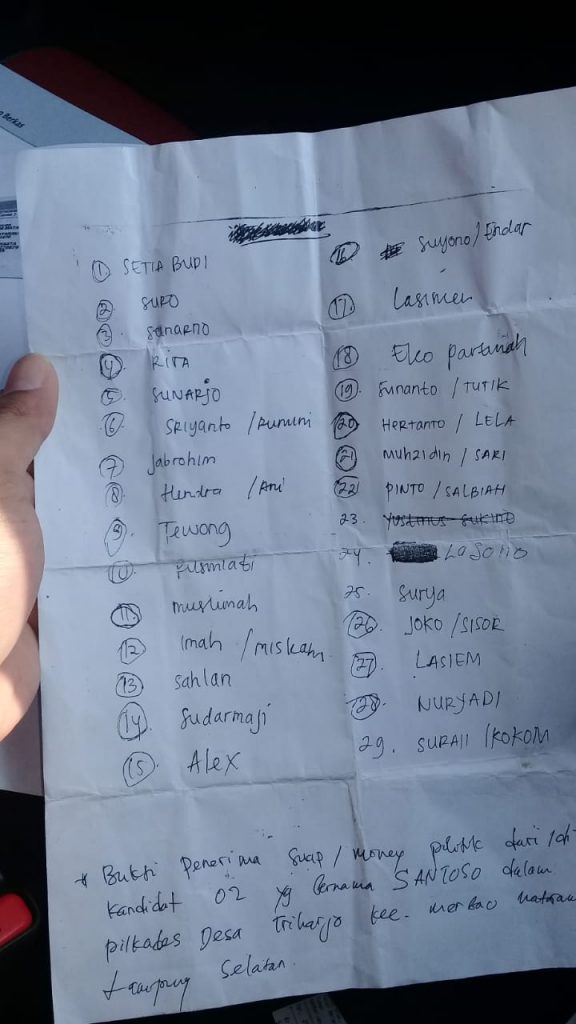 Berkas
1 SETIA BUDI
2 SURO
3 sanarno
4 RITA
5 SUNARJO
6 SRIyanto /Rumini
7 Jabrohim
8 Hendra /Ani
9 Tewong
10 Rusmiati
11. muslimah
12 Imah /MISKAM
13 sahlan
14 Sudarmaji
15 Alex
16 Suyono/Endar
17.
18 Eko
19 Sunanto /TUTIK
20 HERTANTO / LELA
21 MUHZIDIN / SARI
22 PINTO /SALBIAH
23. Yustinus SUKINO
24. LASONO
25. Surya
26 JOKO /SISOR
27 LASIEM
28 NURYADI
29. SURAJI /KOKOM
* Bukti Penerima suap/ money politik dari
kandidat 02 yg bernama SANTOSO dalam
pilkades Desa Triharjo kec. merbau mataram
Lampung Selatan.